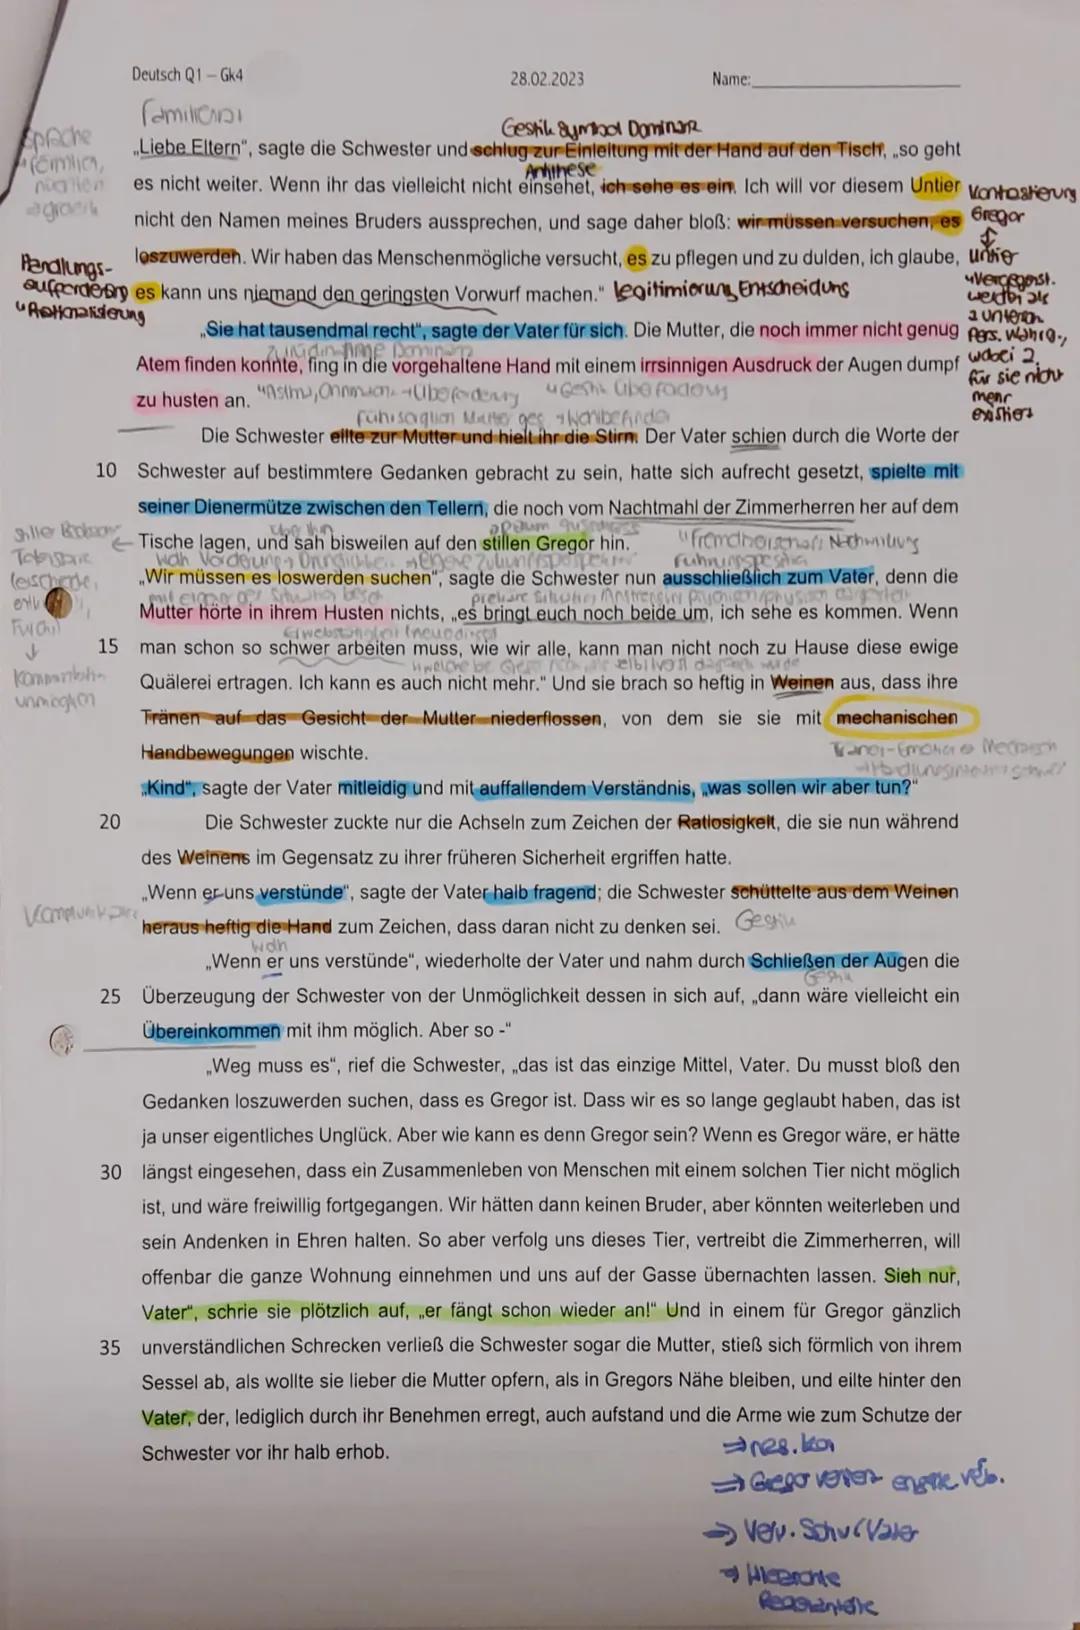 Deutsch Q1 – Gk4
28.02.2023
Name:
Gestik Symbol Dominanz
Sprache
„Liebe Eltern", sagte die Schwester und schlug zur Einleitung mit der Hand auf den Tisch, „so geht
Antithese
es nicht weiter. Wenn ihr das vielleicht nicht einsehet, ich sehe es ein. Ich will vor diesem Untier
Kontrastierung
nicht den Namen meines Bruders aussprechen, und sage daher bloß: wir müssen versuchen, es
Gregor
↕
Untier
loszuwerden. Wir haben das Menschenmögliche versucht, es zu pflegen und zu dulden, ich glaube,
Handlungs-
aufforderung
es kann uns niemand den geringsten Vorwurf machen."
Legitimierung Entscheidung
„Sie hat tausendmal recht", sagte der Vater für sich. Die Mutter, die noch immer nicht genug
Atem finden konnte, fing in die vorgehaltene Hand mit einem irrsinnigen Ausdruck der Augen dumpf
wobei 2.
für sie nicht
mehr
existiert
zu husten an.
Die Schwester eilte zur Mutter und hielt ihr die Stirn. Der Vater schien durch die Worte der
10 Schwester auf bestimmtere Gedanken gebracht zu sein, hatte sich aufrecht gesetzt, spielte mit
seiner Dienermütze zwischen den Tellern, die noch vom Nachtmahl der Zimmerherren her auf dem
Tische lagen, und sah bisweilen auf den stillen Gregor hin.
„Wir müssen es loswerden suchen", sagte die Schwester nun ausschließlich zum Vater, denn die
Mutter hörte in ihrem Husten nichts, „es bringt euch noch beide um, ich sehe es kommen. Wenn
15 man schon so schwer arbeiten muss, wie wir alle, kann man nicht noch zu Hause diese ewige
Quälerei ertragen. Ich kann es auch nicht mehr." Und sie brach so heftig in Weinen aus, dass ihre
Tränen auf das Gesicht der Mutter niederflossen, von dem sie sie mit mechanischen
Handbewegungen wischte.
„Kind", sagte der Vater mitleidig und mit auffallendem Verständnis, „was sollen wir aber tun?"
20 Die Schwester zuckte nur die Achseln zum Zeichen der Ratlosigkeit, die sie nun während
des Weinens im Gegensatz zu ihrer früheren Sicherheit ergriffen hatte.
„Wenn er uns verstünde", sagte der Vater halb fragend; die Schwester schüttelte aus dem Weinen
heraus heftig die Hand zum Zeichen, dass daran nicht zu denken sei.
Gestik
Wdh
„Wenn er uns verstünde", wiederholte der Vater und nahm durch Schließen der Augen die
Gestik
25 Überzeugung der Schwester von der Unmöglichkeit dessen in sich auf, „dann wäre vielleicht ein
Übereinkommen mit ihm möglich. Aber so -"
„Weg muss es", rief die Schwester, „das ist das einzige Mittel, Vater. Du musst bloß den
Gedanken loszuwerden suchen, dass es Gregor ist. Dass wir es so lange geglaubt haben, das ist
ja unser eigentliches Unglück. Aber wie kann es denn Gregor sein? Wenn es Gregor wäre, er hätte
30 längst eingesehen, dass ein Zusammenleben von Menschen mit einem solchen Tier nicht möglich
ist, und wäre freiwillig fortgegangen. Wir hätten dann keinen Bruder, aber könnten weiterleben und
sein Andenken in Ehren halten. So aber verfolg uns dieses Tier, vertreibt die Zimmerherren, will
offenbar die ganze Wohnung einnehmen und uns auf der Gasse übernachten lassen. Sieh nur,
Vater", schrie sie plötzlich auf, „er fängt schon wieder an!" Und in einem für Gregor gänzlich
35 unverständlichen Schrecken verließ die Schwester sogar die Mutter, stieß sich förmlich von ihrem
Sessel ab, als wollte sie lieber die Mutter opfern, als in Gregors Nähe bleiben, und eilte hinter den
Vater, der, lediglich durch ihr Benehmen erregt, auch aufstand und die Arme wie zum Schutze der
Schwester vor ihr halb erhob.
⇒ Hierarchie